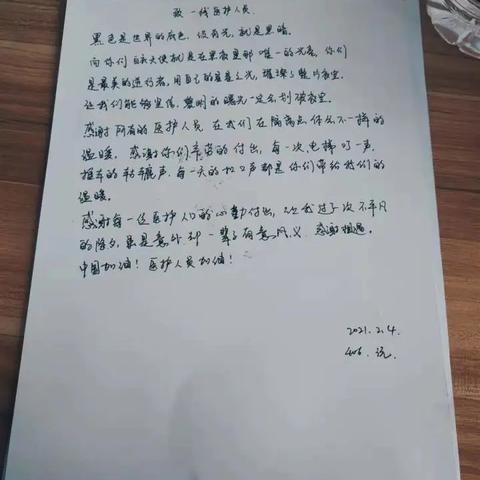 致一线医护人员
黑色是世界的底色，没有光，就是黑暗。
向你们白衣天使就是在黑夜是那唯一的光亮，你们
是最美的逆行者，用自己的星星之光，璀璨了整片夜空。
让我们能够坚信，黎明的曙光一定会划破夜空。
感谢所有的医护人员在我们在隔离点体会不一样的
温暖。感谢你们辛苦的付出，每一次电梯叮一声，
推车的轱辘声，每一天的加口声都是你们带给我们的
温暖。
感谢每一位医护人员的心勤付出，让我过了次不平凡
的除夕，虽是意外却一辈子有意义 感谢相遇。
中国加油！医护人员加油！
2021.2.4.
406.